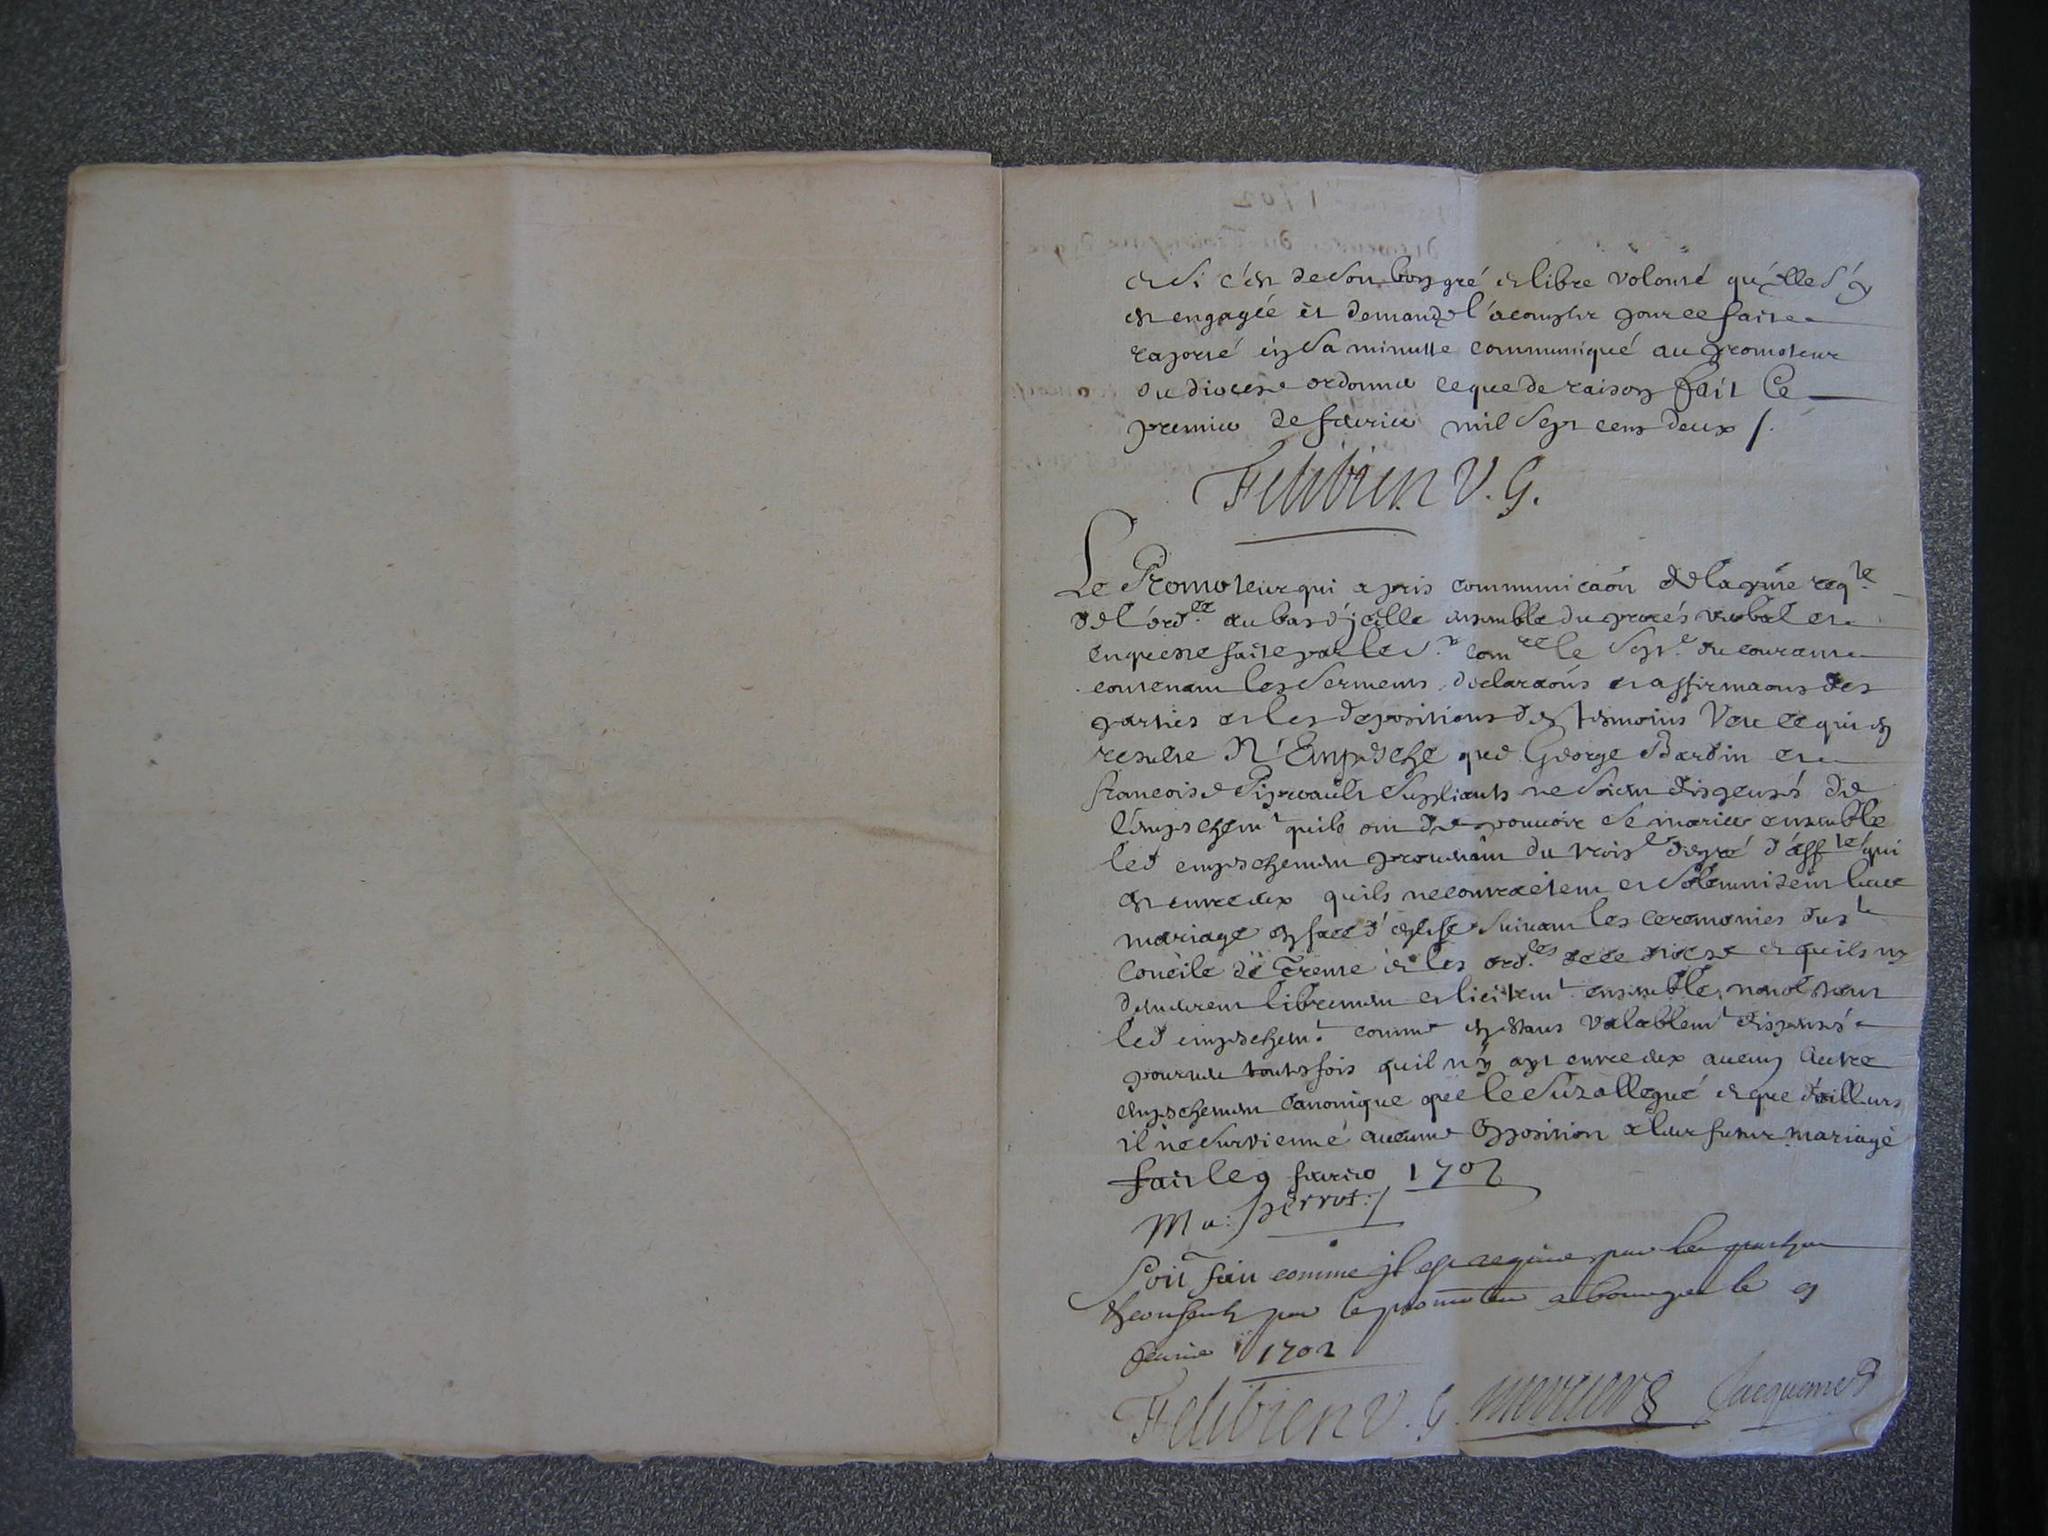 et si c'est de son bon gré et libre volonté qu'elle s'y
est engagée et demande l'acomplir pour ce faite
raporté et sa minutte communiqué au promoteur
du diocese ordonner ce que de raison fait ce
premier de fevrier mil sept cens deux /.
Felibien V. G.
Le Promoteur qui a pris communicaõn de la pñte reqte
de l'ordce au bas d'jcelle ensemble du procés verbal et
enqueste faite par le Sr comre le sept.e du courant
contenant les serments, declaraõns et affirmaõns des
parties et les depositions des tesmoins Veu ce qui en
resulte N'Empesche que George Bardin et
francoise supliants ne soient dispensés de
l'empeschemt quils ont de pouvoir se marier ensemble
led empeschement provenant du troise degré d'affté qui
est entre eux quils ne contractent et solemnisent leur
mariage en face d'eglise suivant les ceremonies du st
Concile de Trente et les ordces de ce diocese et quils ny
demeurent librement et licitemt ensemble nonobstant
led empeschemt comme en estans valablemt dispensés
pourveu toutesfois quil n'y ayt entre eux aucun autre
empeschement canonique que le suzallegué et que d'ailleurs
il ne survienne aucune opposition a leur futur mariage
fait le 9 fevrier 1702
M a: Perrot:/
Soit fait comme jl est requis par les parties
et consenty par le promoteur le 9
fevrier 1702
Felibien V. G. Mercier Jacquemet
1702